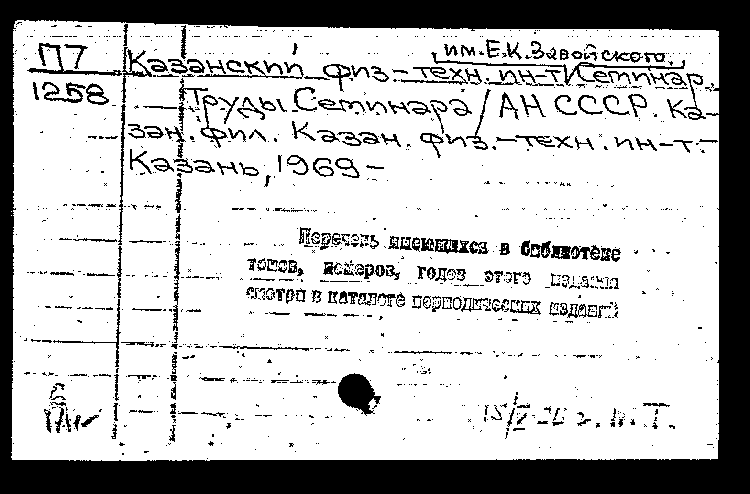 им. Е.К. Завойского.
П7 Казанский физ-техн. ин-т. Семинар.
1258 Труды Семинара / АН СССР. Ка-
зан. фил. Казан. физ.-техн. ин-т.-
Казань, 1969-
Перечень имеющихся в библиотеке
томов, номеров, годов этого издания
смотри в каталоге периодических изданий